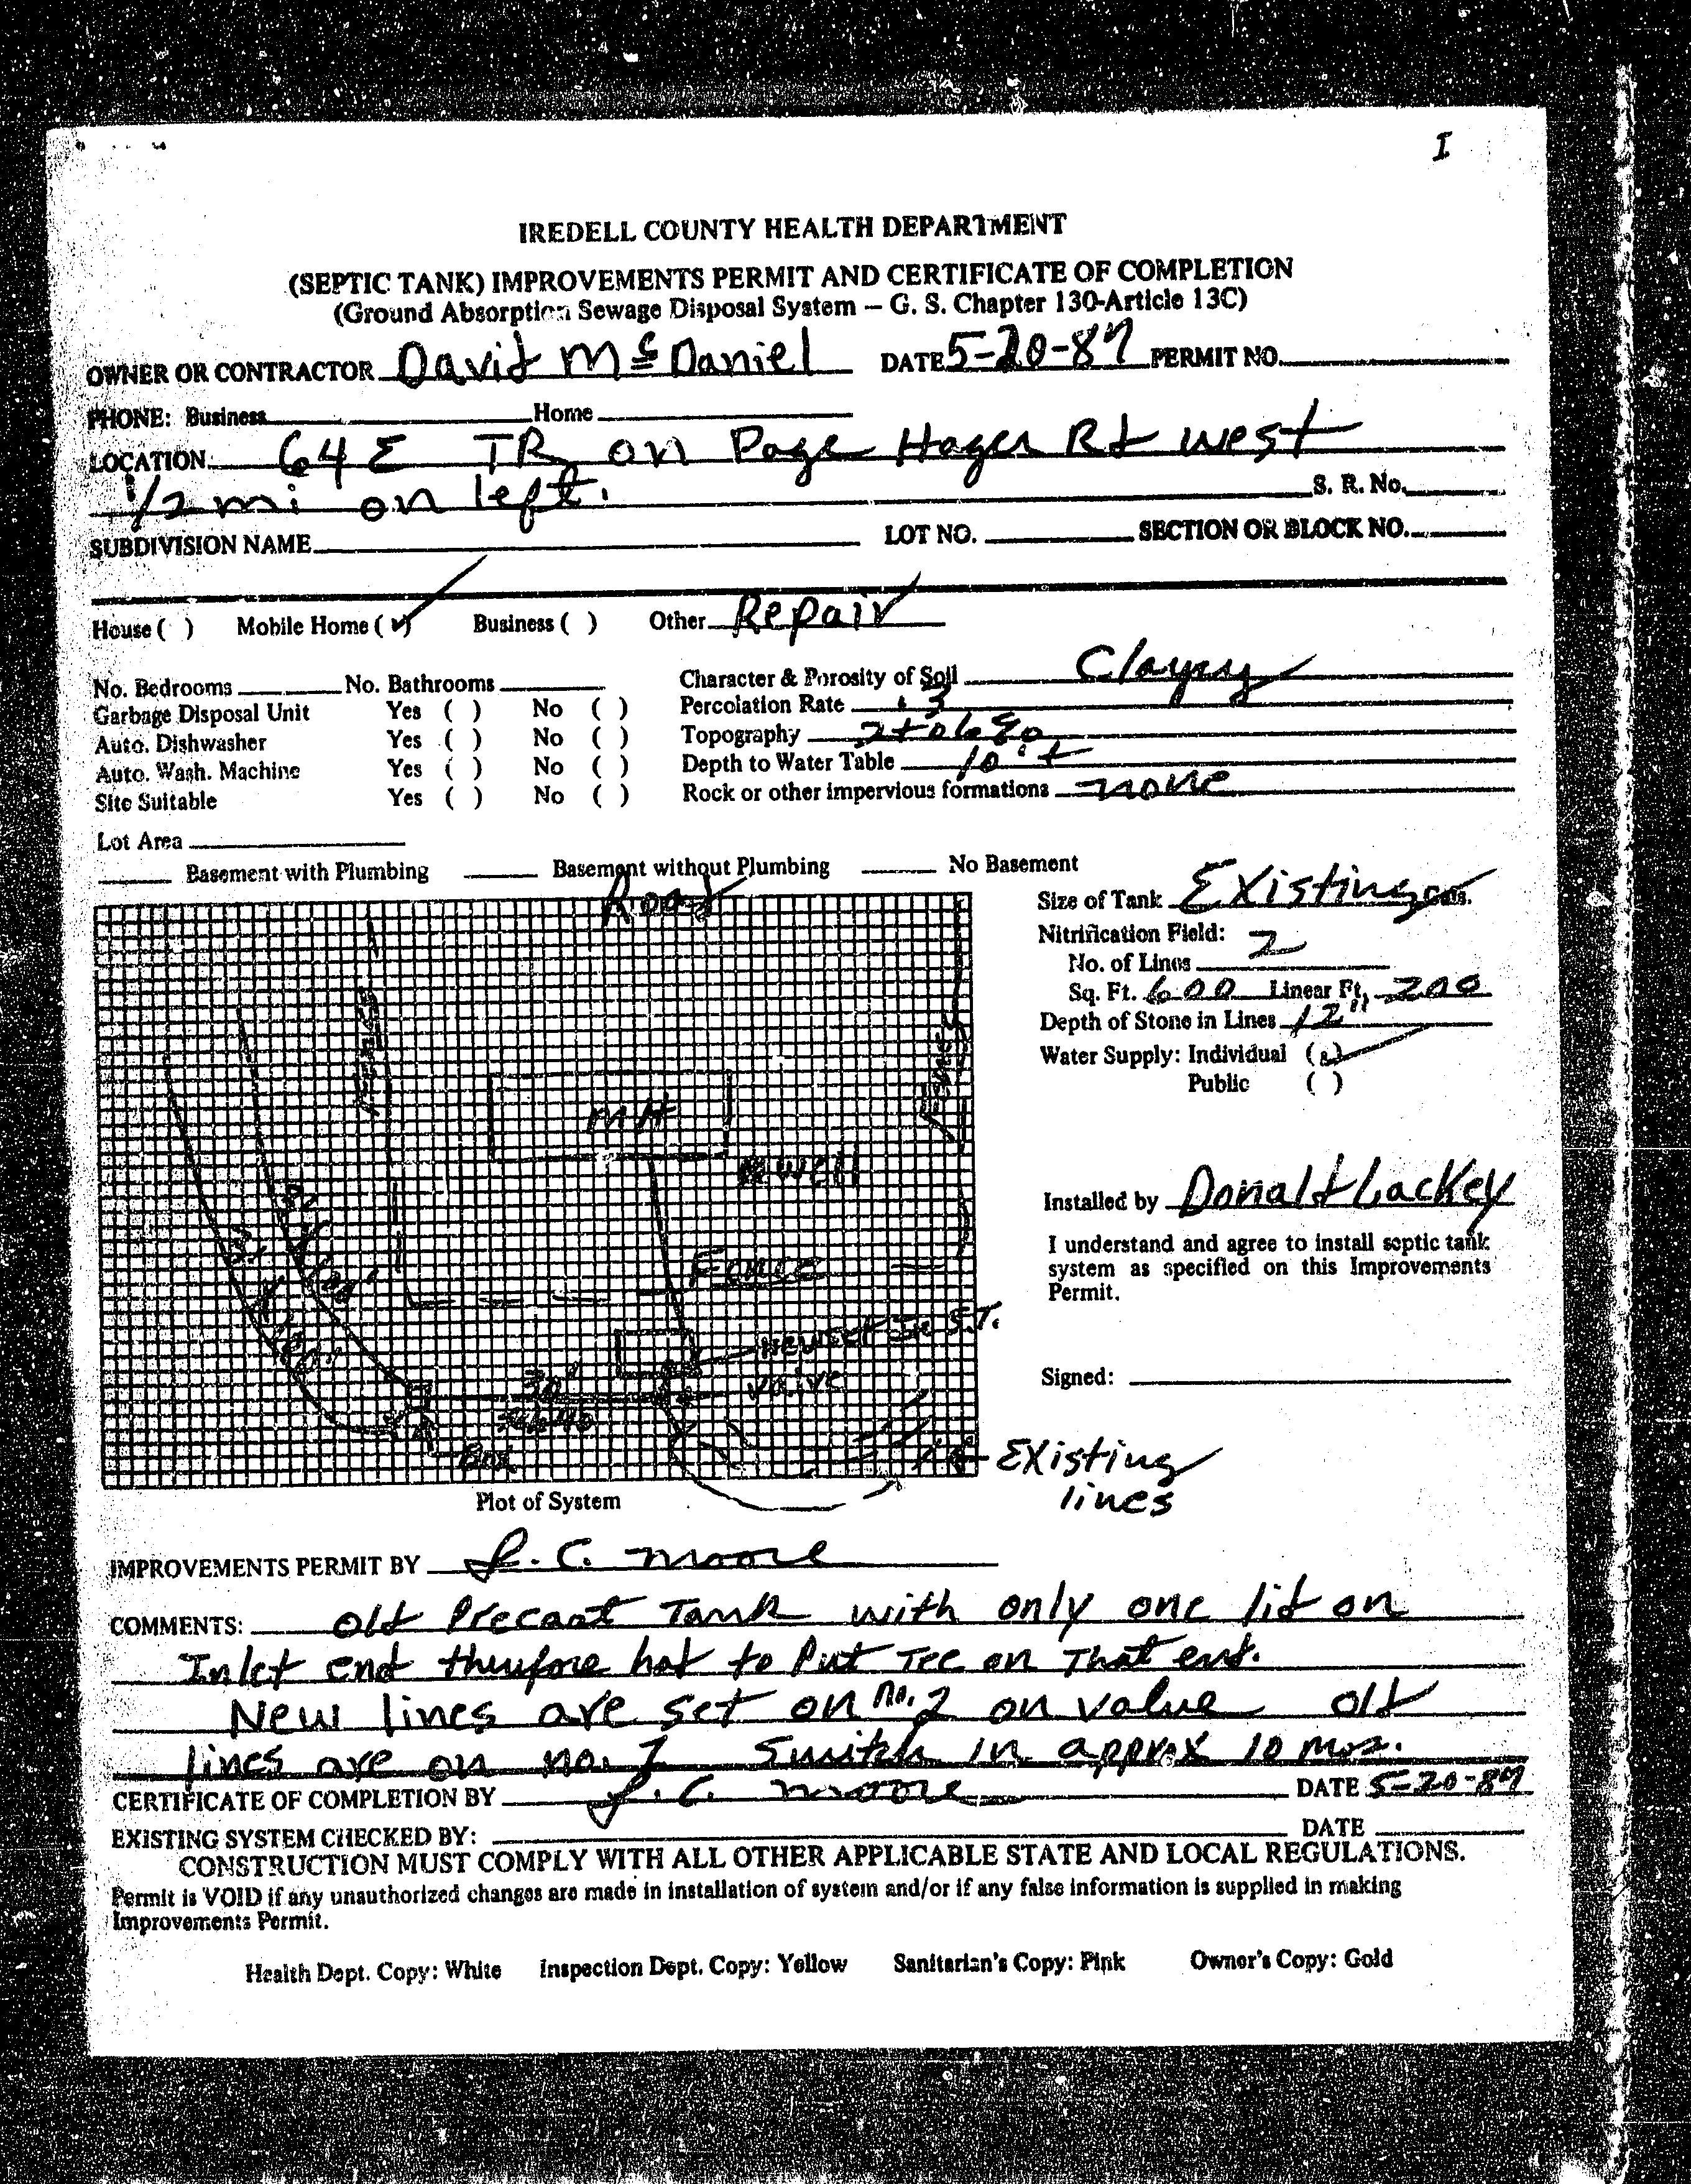 I
IREDELL COUNTY HEALTH DEPARTMENT
(SEPTIC TANK) IMPROVEMENTS PERMIT AND CERTIFICATE OF COMPLETION
(Ground Absorption Sewage Disposal System – G. S. Chapter 130-Article 13C)
OWNER OR CONTRACTOR David McDaniel DATE 5-20-87 PERMIT NO.
PHONE: Business Home
LOCATION: 64 E TR on Page Hager Rd west
1/2 mi on left. S. R. No.
SUBDIVISION NAME LOT NO. SECTION OR BLOCK NO.
House ( ) Mobile Home (✓) Business ( ) Other Repair
No. Bedrooms No. Bathrooms Character & Porosity of Soil Clayey
Garbage Disposal Unit Yes ( ) No ( ) Percolation Rate .3
Auto. Dishwasher Yes ( ) No ( ) Topography 2 to 6%
Auto. Wash. Machine Yes ( ) No ( ) Depth to Water Table 10'+
Site Suitable Yes ( ) No ( ) Rock or other impervious formations none
Lot Area
Basement with Plumbing Basement without Plumbing No Basement
Road
Size of Tank Existing Gals.
Nitrification Field:
No. of Lines 2
Sq. Ft. 600 Linear Ft. 200
Depth of Stone in Lines 12"
Water Supply: Individual (✓)
Public ( )
Fence
Fence
MH
Well
Installed by Donald Lackey
I understand and agree to install septic tank
system as specified on this Improvements
Permit.
Fence
S.T.
Valve
30'
Box
Signed:
Existing
lines
Plot of System
IMPROVEMENTS PERMIT BY J. C. Moore
COMMENTS: Old Precast Tank with only one lid on
Inlet end therefore had to Put Tee on That end.
New lines are set on no. 2 on valve old
lines are on no. 1 Switch in approx 10 mos.
CERTIFICATE OF COMPLETION BY J. C. Moore DATE 5-20-87
EXISTING SYSTEM CHECKED BY: DATE
CONSTRUCTION MUST COMPLY WITH ALL OTHER APPLICABLE STATE AND LOCAL REGULATIONS.
Permit is VOID if any unauthorized changes are made in installation of system and/or if any false information is supplied in making
Improvements Permit.
Health Dept. Copy: White Inspection Dept. Copy: Yellow Sanitarian's Copy: Pink Owner's Copy: Gold